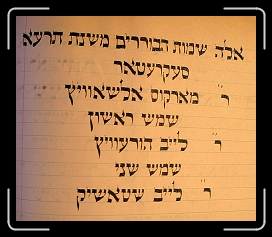 אלה שמות הבוררים משנת תרעא
סעקרעטאר
ר' מארקוס אלשאוויץ
שמש ראשון
ר' לייב הורעוויץ
שמש שני
ר' לייב שטאשיק